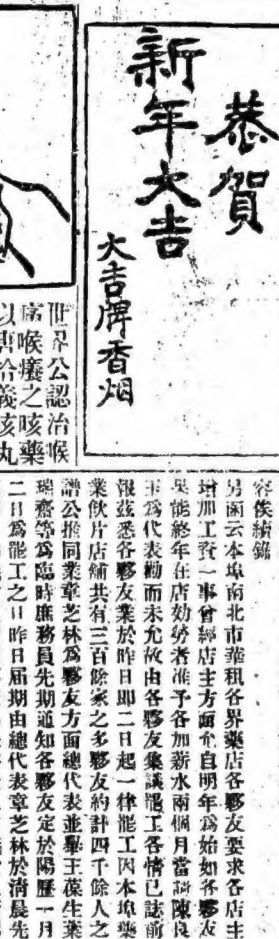 恭賀
新年大吉
大吉牌香烟
世界公認治喉
痛喉癢之咳藥
容俟續錄
另函云本埠南北市華租各界藥店各夥友要求各店主
增加工資一事曾經店主方面允自明年爲始如各夥友
果能終年在店効勞者准予各加薪水兩個月當請陳良
玉爲代表勸而未允故由各夥友集議罷工各情已誌前
報茲悉各夥友業於昨日即二日起一律罷工因本埠藥
業飲片店舖共有三百餘家之多夥友約計四千餘人之
譜公推同業章芝林爲夥友方面總代表並舉王葆生葉
瑞齋等爲臨時庶務員先期通知各夥友定於陽歷一月
二日爲罷工之日昨日屆期由總代表章芝林於清晨先